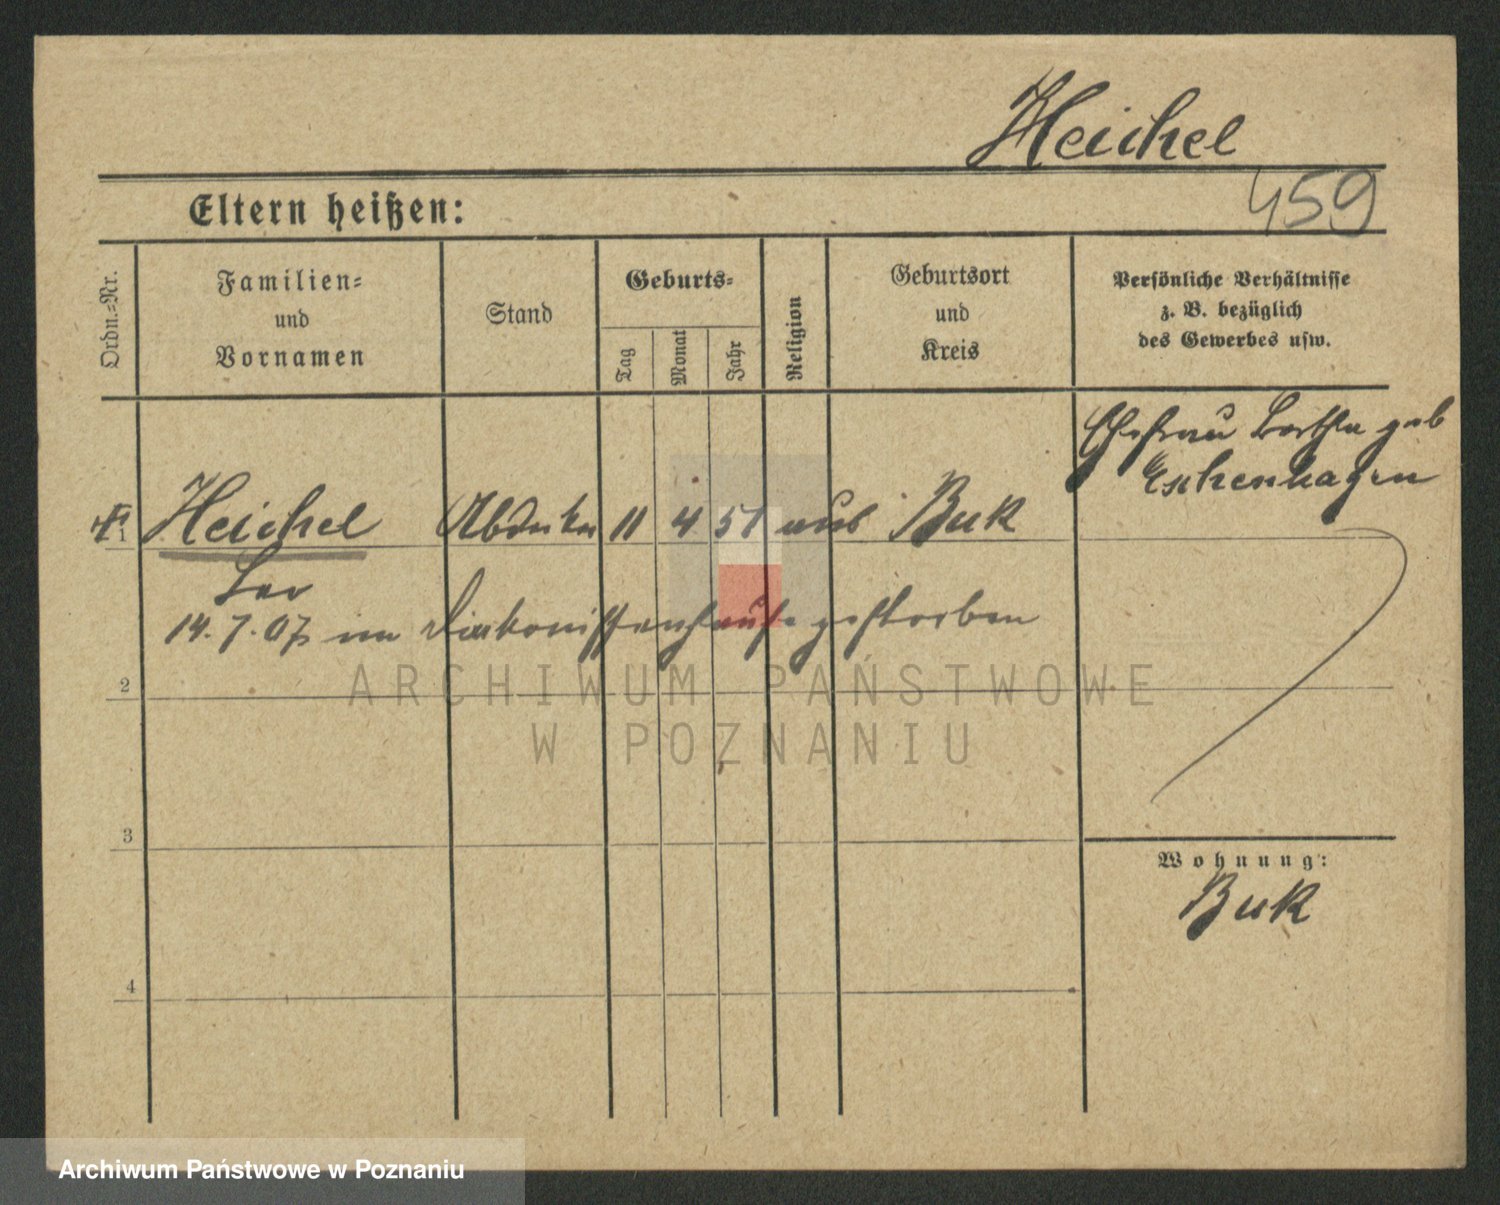 Heichel
459
Eltern heißen:
Ordn.-Nr.
Familien-
und
Vornamen
Stand
Geburts-
Tag
Monat
Jahr
Religion
Geburtsort
und
Kreis
Persönliche Verhältnisse
z. B. bezüglich
des Gewerbes usw.
Ehefrau Bertha geb
Eschenhagen
1 Heichel 11 4 51 aus Buk
14.7.07 im Diakonissenhause gestorben
2
3
4
Wohnung:
Buk
ARCHIWUM PAŃSTWOWE
W POZNANIU
Archiwum Państwowe w Poznaniu